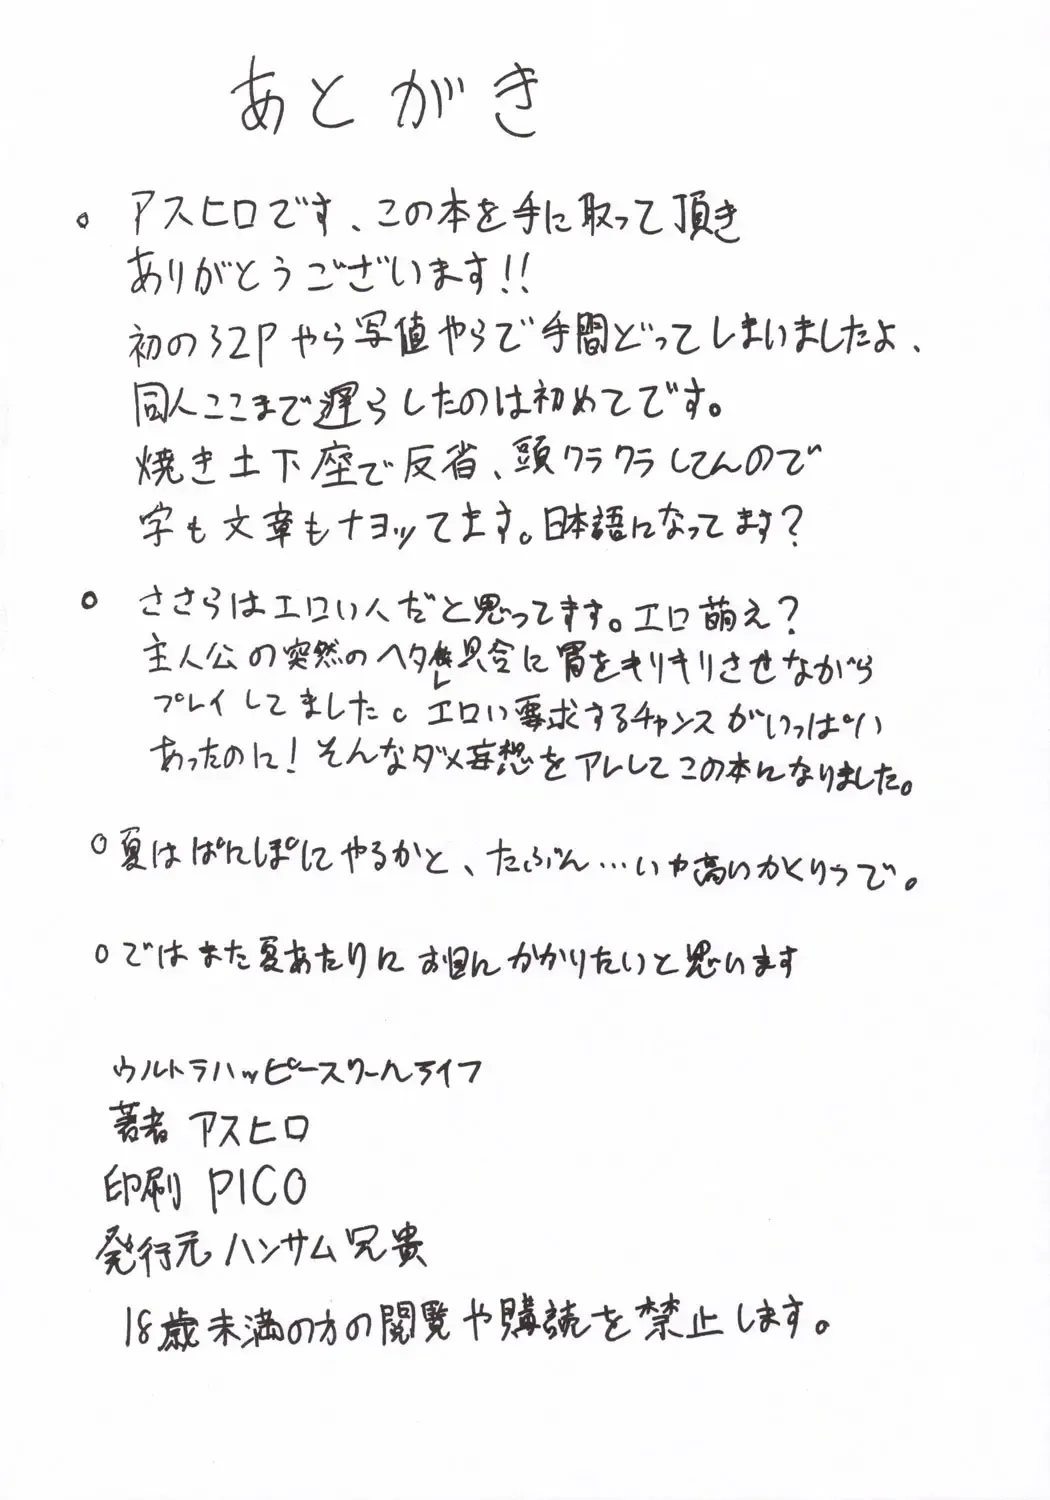 あとがき
○ アスヒロです、この本を手に取って頂き
ありがとうございます!!
初の32Pやら写値やらで手間どってしまいましたよ、
同人ここまで遅らしたのは初めてです。
焼き土下座で反省、頭クラクラしてんので
字も文章もナヨッてます。日本語になってます?
○ ささらはエロい人だと思ってます。エロ萌え?
主人公の突然のヘタレ具合に胃をキリキリさせながら
プレイしてました。エロい要求するチャンスがいっぱい
あったのに!そんなダメ妄想をアレしてこの本になりました。
○ 夏はぱにぽにやるかと、たぶん…いや高いかくりつで。
○ ではまた夏あたりにお目にかかりたいと思います
ウルトラハッピースクールライフ
著者 アスヒロ
印刷 PICO
発行元 ハンサム兄貴
18歳未満の方の閲覧や購読を禁止します。